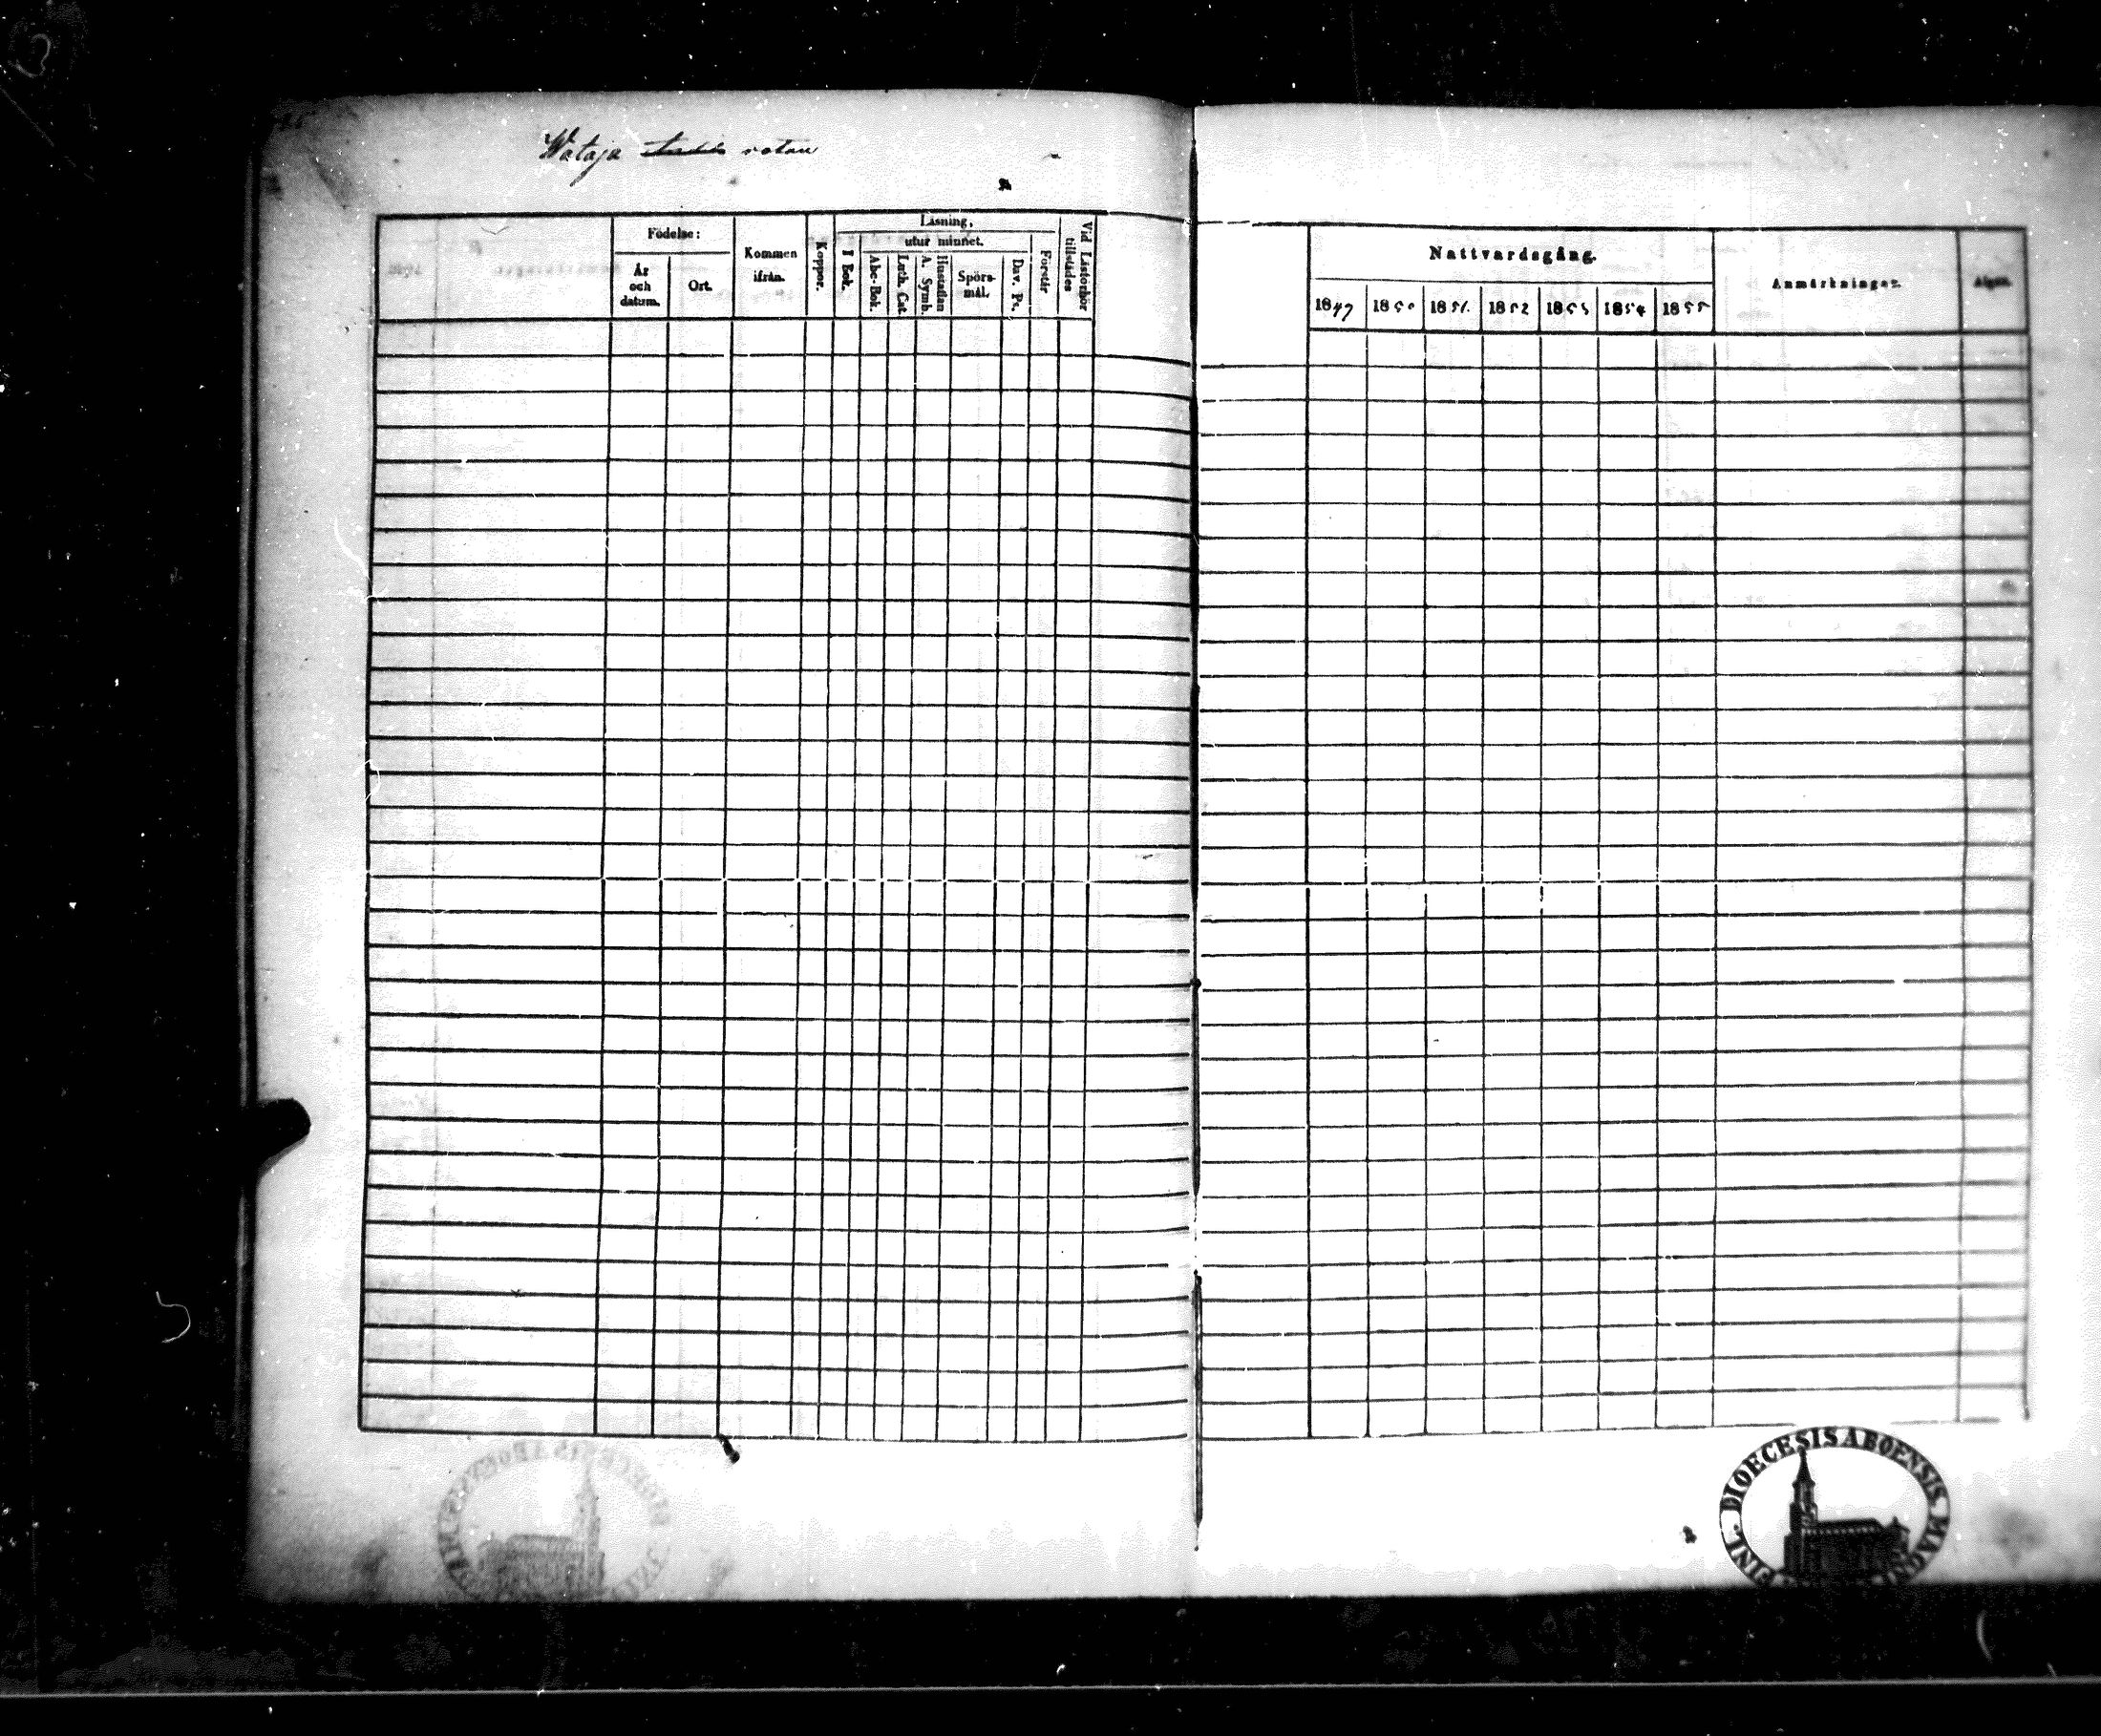 Wataja rotan
Födelse:
År och datum.
Ort.
Kommen ifrån.
Koppor.
Läsning,
I Bok.
utur minnet.
Abc-Bok.
Luth. Cat.
A. Symb.
Hustaflan
Spörs-mål.
Dav. Ps.
Förstår
Vid Läsförhör tillstädes
Nattvardsgång.
1847 1850 1851. 1852 1853 1854 1855
Anmärkningar.
Afgått.
FINL. DIOECESIS ABOENSIS. MAGNI